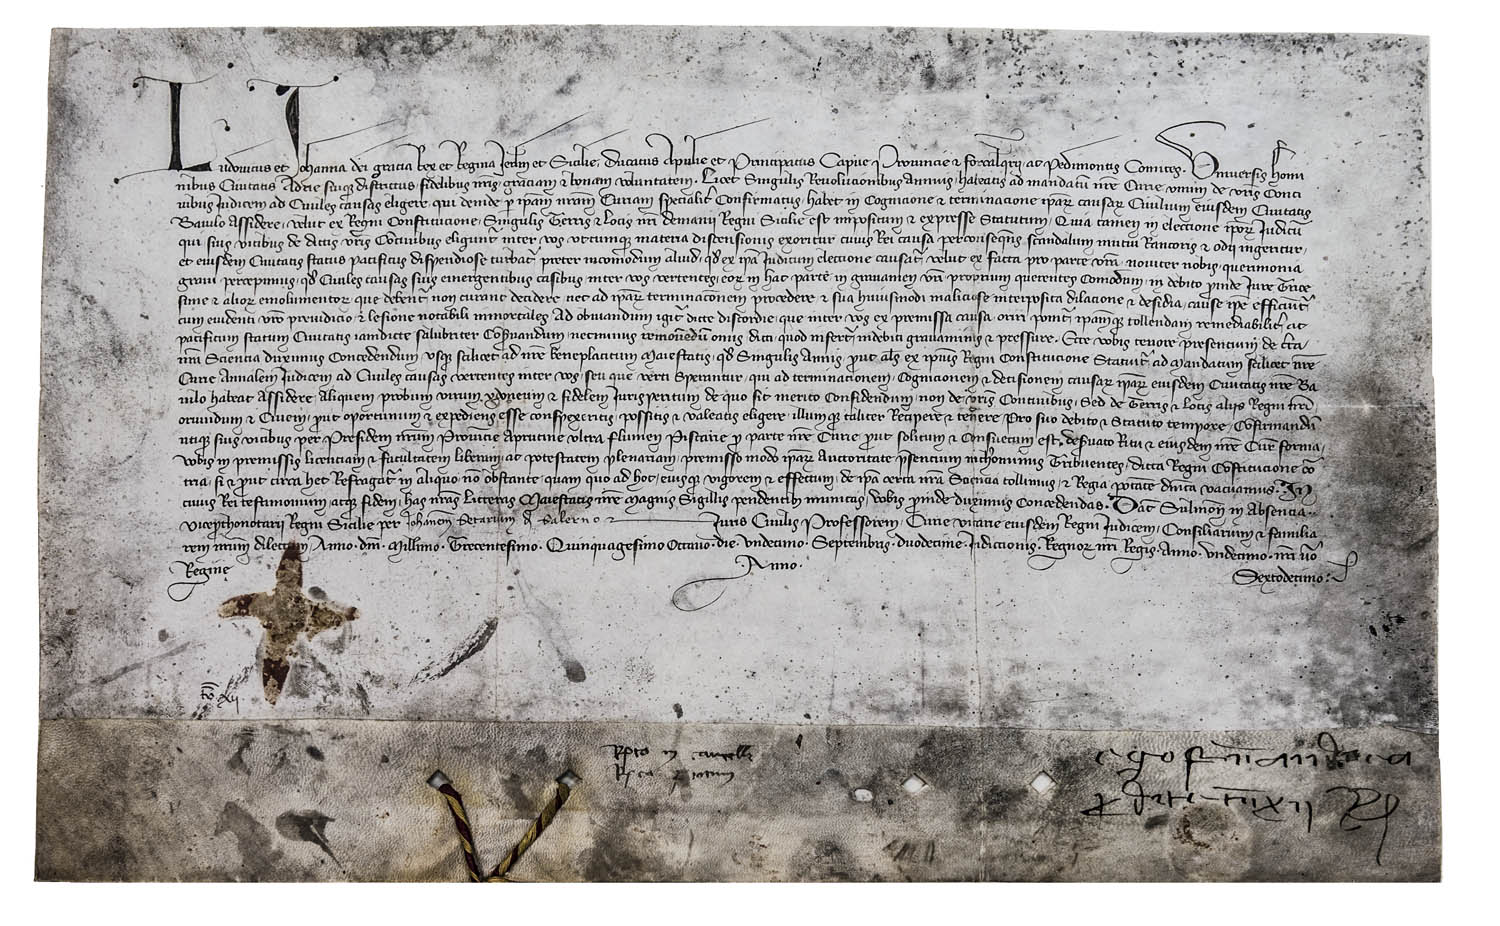 Ludovicus et Johanna dei gracia Rex et Regina Jerlm et Sicilie, Ducatus Apulie et Principatus Capue, Provincie et forcalquerii ac Pedimontis Comites. Universis homi
nibus Civitatis Adrie siusq districtus, fidelibus nris, graciam et bonam voluntatem. Licet Singulis Revolucionibus Annuis, habeatis ad mandatu nre Curie unum de vris Conci
vibus Iudicem ad Civiles causas eligere, qui deinde p ipam nram Curiam specialit Confirmatus, habet in Cognicione et terminacione ipar causar Civilium eiusdem Civitatis
Baiulo Assidere, velut ex Regni Constitucione, Singulis Terris et Locis nri demanii Regni Sicilie est impositum et expresse Statutum. Quia tamen in electione ipor Iudicu
qui suis vicibus de dictis vris Cocivibus eligunt inter vos utcumq materia discensionis exoritur cuius Rei causa per conseqns scandalum mutui Rancoris et odii ingeritur,
et eiusdem Civitatis status pacificus dispendiose turbat, preter incomodum aliud, qd ex ipa Iudicum electione causat, velut ex facta pro parte vra, noviter nobis, querimonia
gravi percepimus, qd Civiles causas suis emergentibus casibus inter vos vertentes, eor in hac parte in gravamen vri proprium querentes Comodum, in debito proinde Iure Trice
sime et alior emolumentor que debent non curant decidere nec ad ipar terminaconem procedere et sua huiusmodi maliciose interposita dilacione et desidia, cause ipe efficiunt
cum evidenti vro preiudicio et lesione notabili immortales. Ad obviandum igit dicte discordie, que inter vos ex premissa causa oriri ponit, ipamq tollendam remediabilit ac
pacificum statum Civitatis iamdicte salubriter Coservandum, necminus removendu omis dicti, quod insert indebiti gravaminis et pressure. Ecce vobis tenore presentium de certa
nra Sciencia duximus Concedendum usq scilicet ad nre beneplacitum Maiestatis, qd Singulis Annis prout als ex ipius Regni Constitucione Statuit ad Mandatum scilicet nre
Curie Annalem Iudicem ad Civiles causas vertentes inter vos, seu que verti Sperantur, qui ad terminacionem, Cognicionem et decisionem causar ipar eiusdem Civitatis nre Ba
iulo habeat Assidere, aliquem probum virum ydoneum et fidelem Iurisperitum de quo sit merito Confidendum non de vris Concivibus, Sed de Terris et Locis aliis Regni nri
oriundum et Civem, prout oportunum et expediens esse conspexeritis, possitis et valeatis eligere, illumq taliter Recipere et tenere Pro suo debito et Statuto tempore, Cofirmandu
utiq suis vicibus per Presidem nrum Provincie Aprutine ultra flumen Piscarie p parte nre Curie prout solitum et Consuetum est, de suato Ritu et eiusdem nre Curie forma,
vobis in premissis licenciam et facultatem liberam ac potestatem plenariam, premisso modo ipar Auctoritate psentium nichominus Tribuentes, dicta Regni Costitucione co
tria, si et prout circa hec Refragat in aliquo no obstante, quam quo ad hoc, eiusq vigorem et effectum, de ipa certa nra Sciencia tollimus, et Regia ptate dinita vacuamus. In
cuius Rei testimonium atq fidem, has nras Litteras Maiestatis nre Magnis Sigillis pendentib munitas, vobis proinde duximus Concedendas. Dat Sulmon in Absencia
viceprothonotarii Regni Sicilie per Johannem de Salerno Iuris Civilis Professorem, Curie vicarie eiusdem Regni Iudicem, Consiliarium et familia
rem nrum dilectum, Anno dni Millimo Trecentesimo Quinquagesimo Octavo die undecimo Septembris duodecime Indictionis. Regnor nri Regis Anno undecimo nri vo
Regine Anno Sextodecimo
xii
Rta in cancell
ego